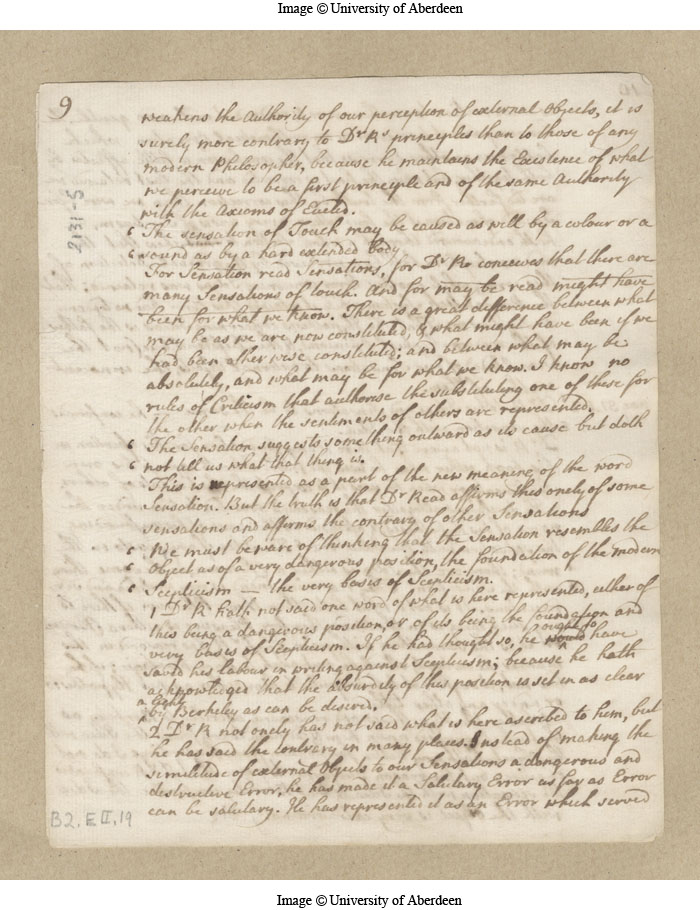 Image © University of Aberdeen
9
weakens the Authority of our perception of external Objects, it is
surely more contrary to Dr Rs principles than to those of any
modern Philosopher, because he maintains the Existence of what
we perceive to be a first principle and of the same Authority
with the Axioms of Euclid.
‘ The sensation of Touch may be caused as well by a colour or a
‘ sound as by a hard extended body
For Sensation read Sensations, for Dr R conceives that there are
many Sensations of touch. And for may be read might have
been for what we know. There is a great difference between what
may be as we are now constituted, & what might have been if we
had been other wise constituted; and between what may be
absolutely, and what may be for what we know. I know no
rules of Criticism that authorise the substituting one of these for
the other when the sentiments of others are represented.
‘ The Sensation suggests something outward as its cause but doth
‘ not tell us what that thing is.
This is represented as a part of the new meaning of the word
Sensation. But the truth is that Dr Read affirms this onely of some
sensations and affirms the contrary of other Sensations
‘ We must beware of thinking that the Sensation resembles the
‘ Object as of a very dangerous position, the foundation of the modern
‘ Scepticism — the very basis of Scepticism.
1 Dr R hath not said one word of what is here represented, either of
this being a dangerous position, or of its being the foundation and
very basis of Scepticism. If he had thought so, he ought to would have
saved his labour in writing against Scepticism; because he hath
acknowledged that the absurdity of this position is set in as clear
a light
by Berkeley as can be desired.
2 Dr R not onely has not said what is here ascribed to him, but
he has said the contrary in many places. Instead of making the
similitude of external Objects to our Sensations a dangerous and
destructive Error, he has made it a Salutary Error as far as Error
can be salutary. He has represented it as an Error which served
2131-5
B2. E II, 19
Image © University of Aberdeen